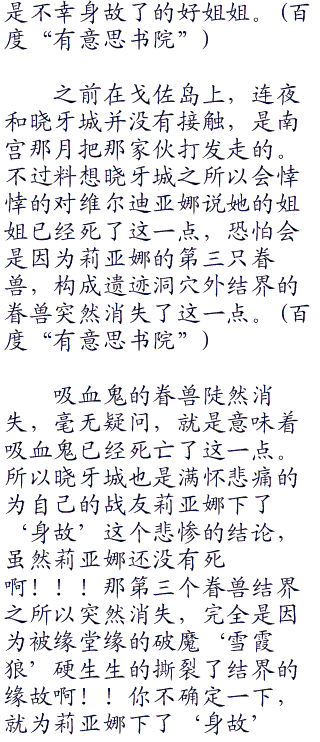 是不幸身故了的好姐姐。(百
度“有意思书院”)
之前在戈佐岛上，连夜
和晓牙城并没有接触，是南
宫那月把那家伙打发走的。
不过料想晓牙城之所以会悻
悻的对维尔迪亚娜说她的姐
姐已经死了这一点，恐怕会
是因为莉亚娜的第三只眷
兽，构成遗迹洞穴外结界的
眷兽突然消失了这一点。(百
度“有意思书院”)
吸血鬼的眷兽陡然消
失，毫无疑问，就是意味着
吸血鬼已经死亡了这一点。
所以晓牙城也是满怀悲痛的
为自己的战友莉亚娜下了
‘身故’这个悲惨的结论，
虽然莉亚娜还没有死
啊！！！那第三个眷兽结界
之所以突然消失，完全是因
为被缘堂缘的破魔‘雪霞
狼’硬生生的撕裂了结界的
缘故啊！！你不确定一下，
就为莉亚娜下了‘身故’